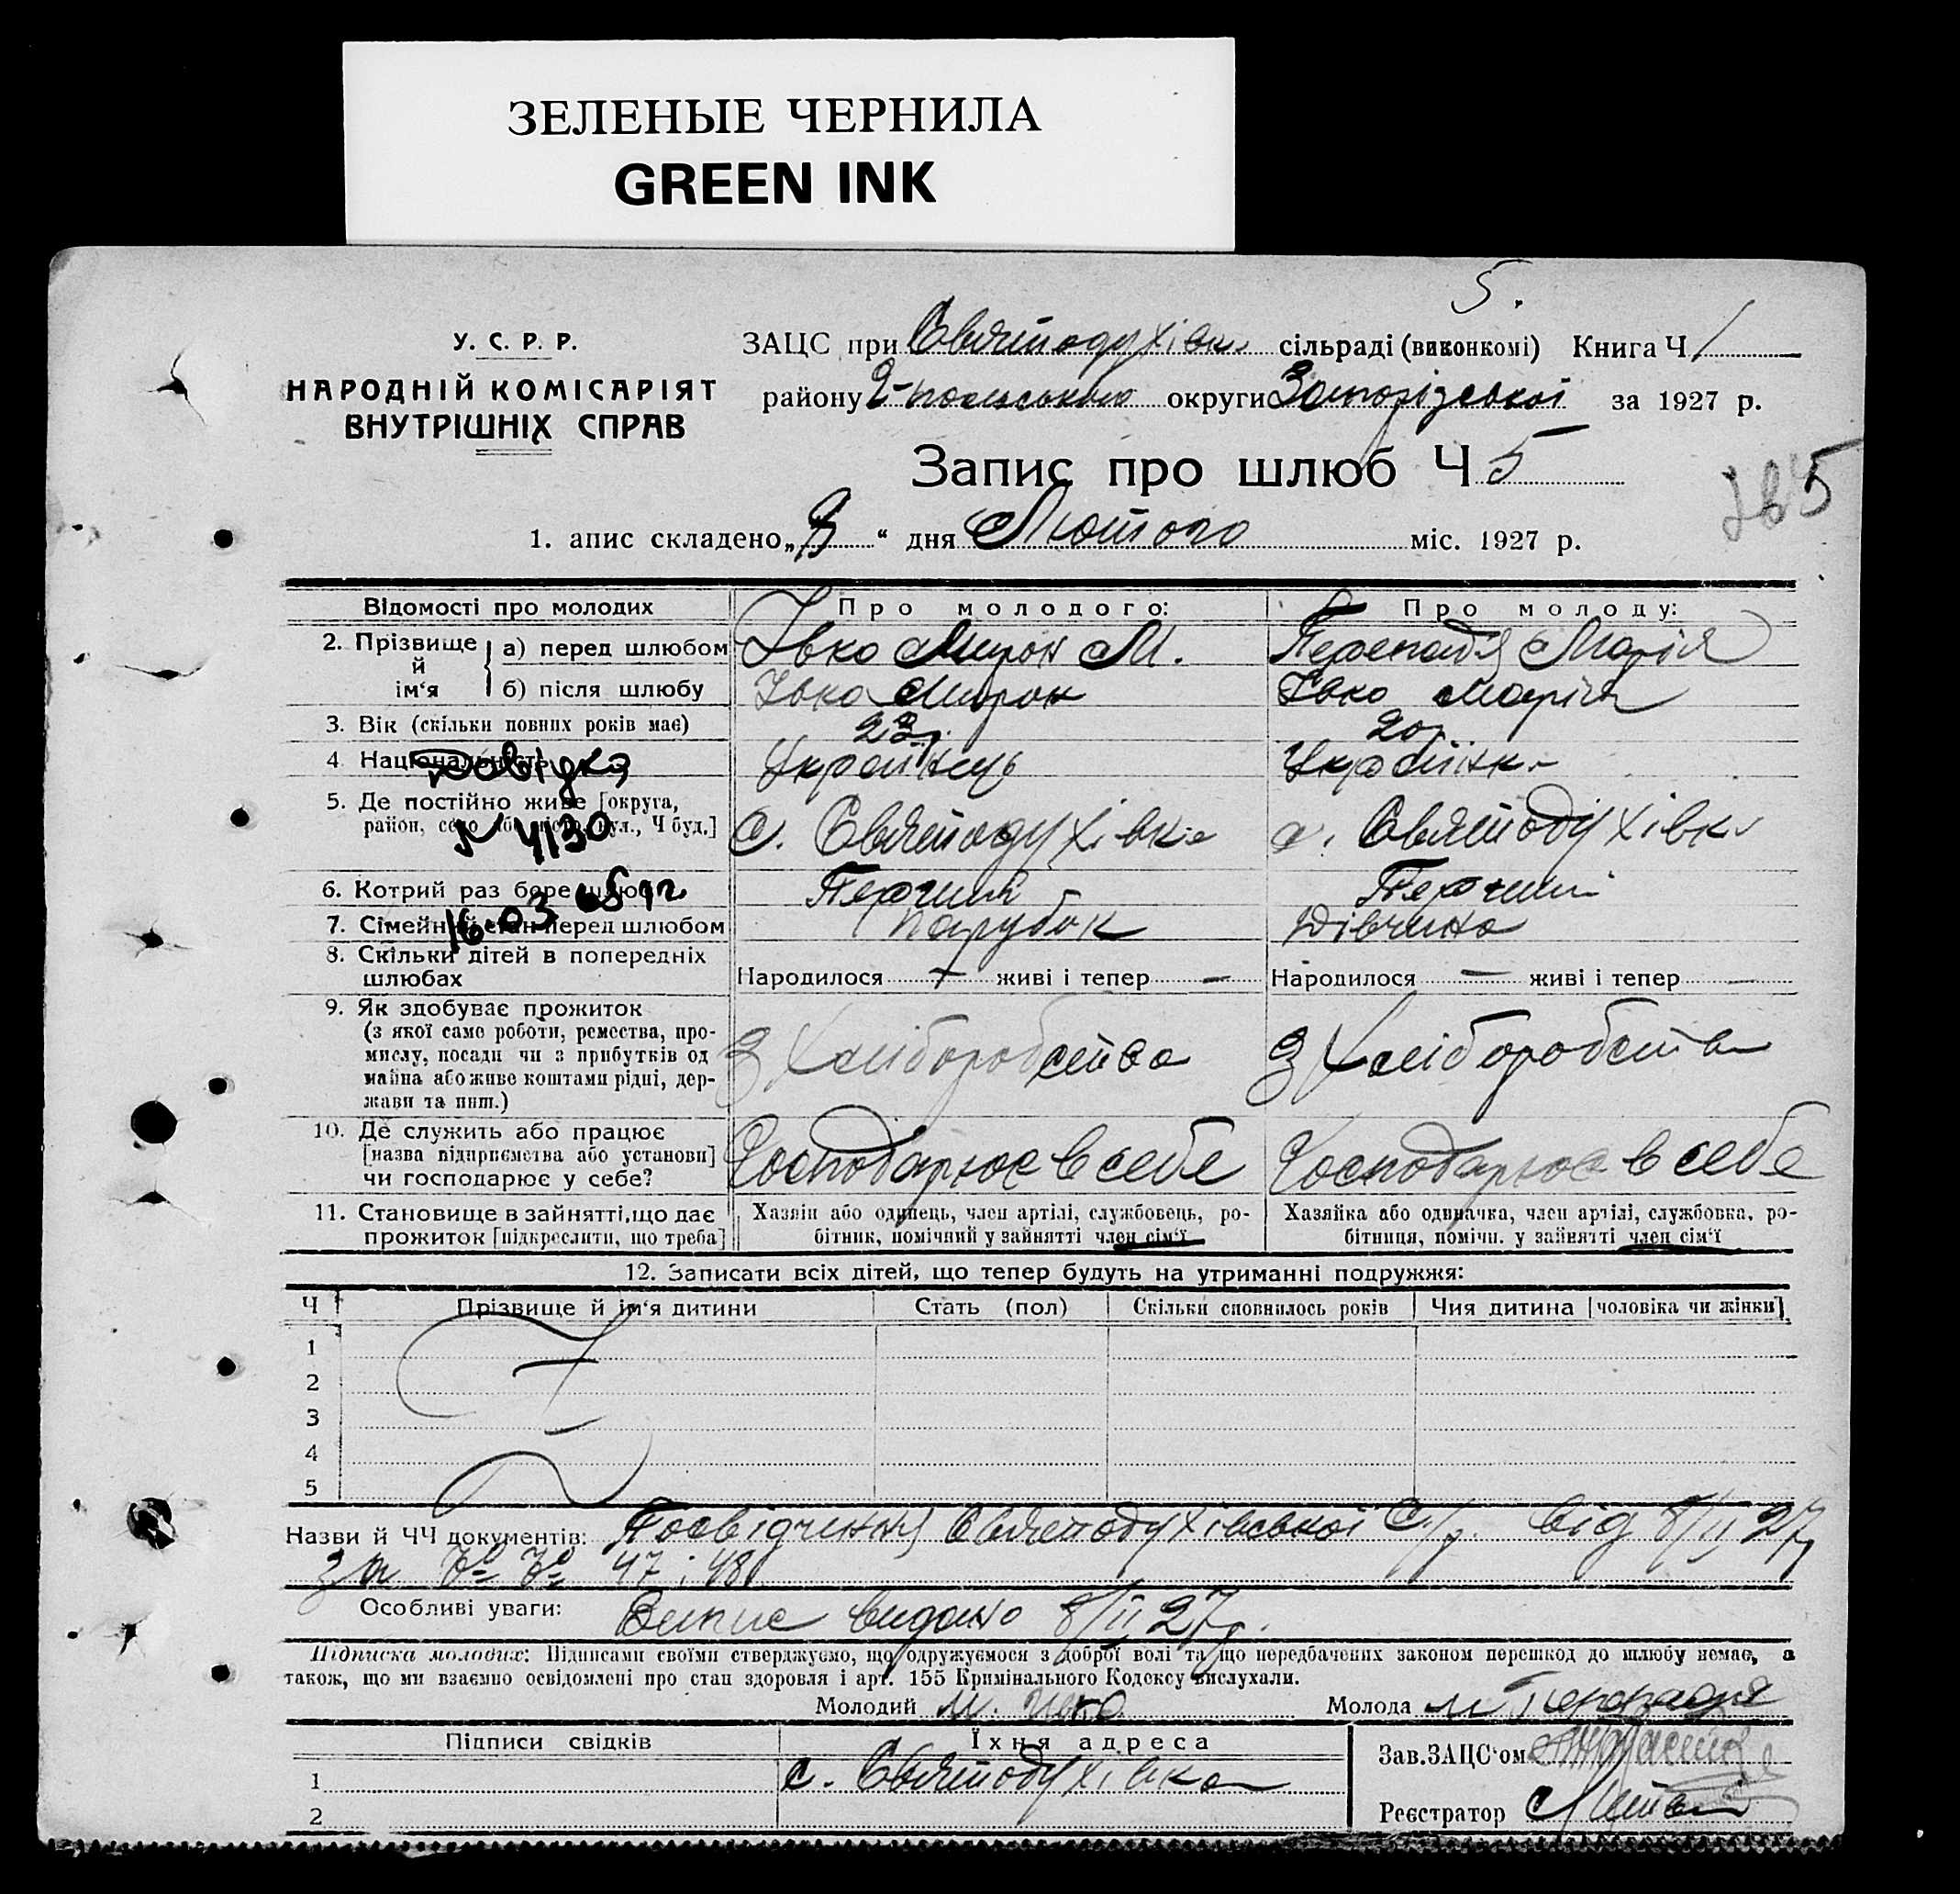 ЗЕЛЕНЫЕ ЧЕРНИЛА
GREEN INK
5.
У. С. Р. Р.
НАРОДНІЙ КОМІСАРІЯТ
ВНУТРІШНІХ СПРАВ
ЗАЦС при Святодухівк. сільраді (виконкомі) Книга Ч 1
району округи Запорізької за 1927 р.
Запис про шлюб Ч 5
1. апис складено „8“ дня Лютого міс. 1927 р.
Відомості про молодих Про молодого: Про молоду:
2. Прізвище й ім‘я а) перед шлюбом Івко Мирон М. Перепадя Марія
б) після шлюбу Івко Мирон Івко Марія
3. Вік (скільки повних років має) 23р. 20р.
4 Національність Українець Українка
Довідка
N 4130
16-03 65 р.
5. Де постійно живе [округа,
район, село або місто, вул., Ч буд.] с. Святодухівка с. Святодухівка
6. Котрий раз бере шлюб Перший Перший
7. Сімейний стан перед шлюбом Парубок Дівчина
8. Скільки дітей в попередніх
шлюбах Народилося — живі і тепер — Народилося — живі і тепер —
9. Як здобуває прожиток
(з якої само роботи, ремества, про-
мислу, посади чи з прибутків од
майна або живе коштами рідні, дер-
жави та инш.) З Хліборобства З Хліборобства
10. Де служить або працює
[назва підприємства або установи]
чи господарює у себе? Господарює в себе Господарює в себе
11. Становище в зайнятті, що дає
прожиток [підкреслити, що треба]
Хазяїн або одинець, член артілі, службовець, ро-
бітник, помічний у зайнятті член сім‘ї
Хазяйка або одиначка, член артілі, службовка, ро-
бітниця, помічн. у зайнятті член сім‘ї
12. Записати всіх дітей, що тепер будуть на утриманні подружжя:
Ч Прізвище й ім‘я дитини Стать (пол) Скільки сповнилось років Чия дитина [чоловіка чи жінки]
1
2
3
4
5
Назви й ЧЧ документів: Посвідчення Святодухівської С/р. від 8/II 27р
за №№ 47 і 48
Особливі уваги: Випис видано 8/II 27р.
Підписка молодих: Підписами своїми стверджуємо, що одружуємося з доброї волі та що передбачених законом перешкод до шлюбу немає, а
також, що ми взаємно освідомлені про стан здоровля і арт. 155 Кримінального Кодексу вислухали.
Молодий М. Ивко Молода М Перепадя
Підписи свідків Їхня адреса
1 с. Святодухівка
2
Зав. ЗАЦС‘ом
Реєстратор